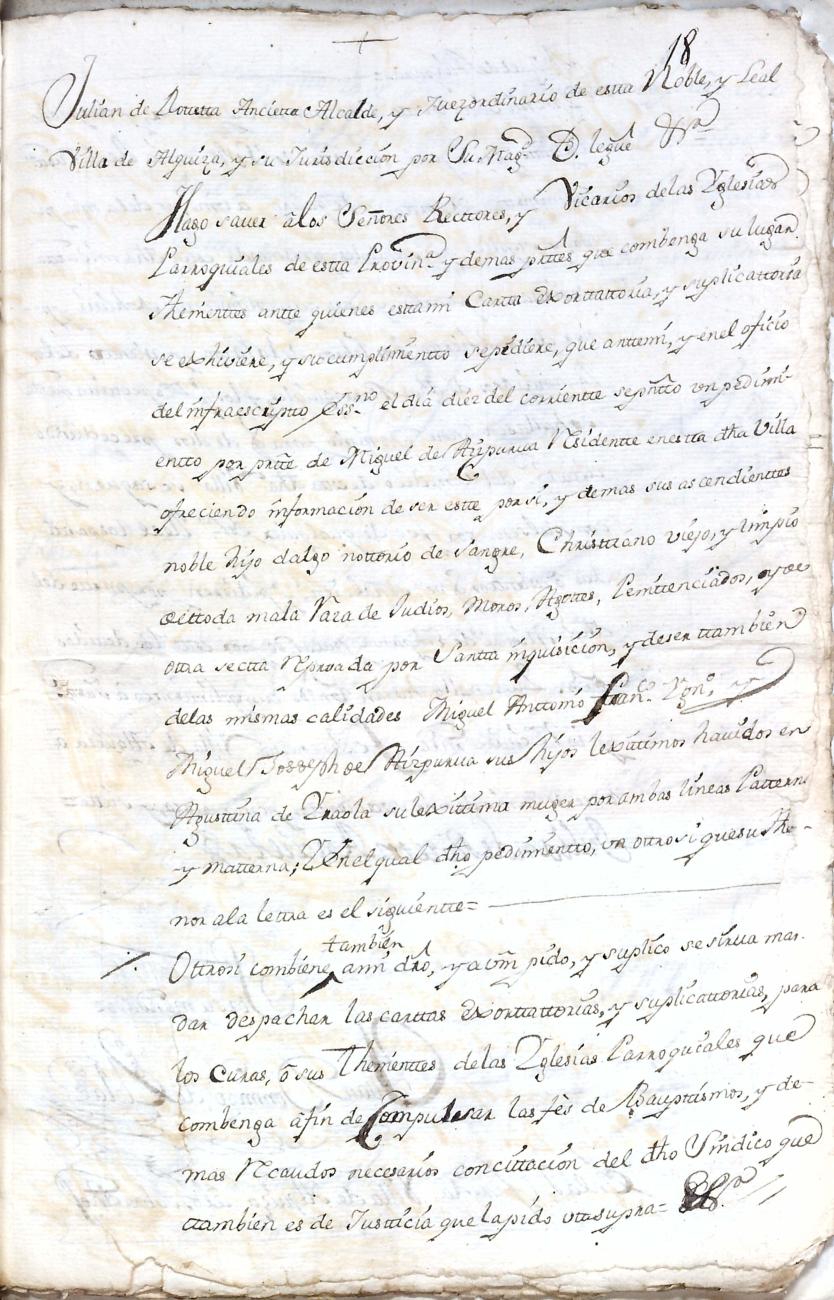 18
Julian de Rottetta Ancietta Alcalde, y Juez ordinario de estta Noble, y Leal
Villa de Alquiza, y su Jurisdiccion por Su Mag.d D. legue &ra
Hago saver â los Señores Recttores, y Vicarios delas Yglesias
Parroquiales de estta Provin.a y demas prttes que combenga su lugar
Thenienttes antte quienes estta mi Cartta exorttattoria, y suplicattoria
se exhiviere, y su cumplimentto se pidiere, que antte mi, y en el oficio
del infraescriptto Ess.no el dia diez del corrientte se pnttó un pedim-
entto por prtte de Miguel de Aizpurua Residentte en estta dha Villa
ofreciendo informacion de ser estte por si, y demas sus ascendienttes
noble hijo dalgo nottorio de sangre, Christtiano viejo, y limpio
de ttoda mala Raza de Judios, Moros, Agottes, Penittenciados, y de
otra sectta Reprovada por Santta inquisicion, y de ser ttambien
delas mismas calidades Miguel Anttonio Fran.co Ygn.o y
Miguel Josseph de Aizpurua sus hijos lexittimos havidos en
Agusttina de Yraola su lexittima muger por ambas lineas Patterna
y Matterna; Y en el qual dho pedimentto, un ottro si que su the-
nor ala lettra es el siguientte=
Ottrosi combiene ttambien â mi dro, y a vm pido, y suplico se sirva man-
dar despachar las carttas exorttattorias, y suplicattorias, para
los Curas, ô sus Thenienttes delas Yglesias Parroquiales que
combenga âfin de Compulsar las fès de Bauptismos, y de-
mas Recaudos necesarios con cittacion del dho Sindico que
ttambien es de Justticia que la pido utt supra= &ra